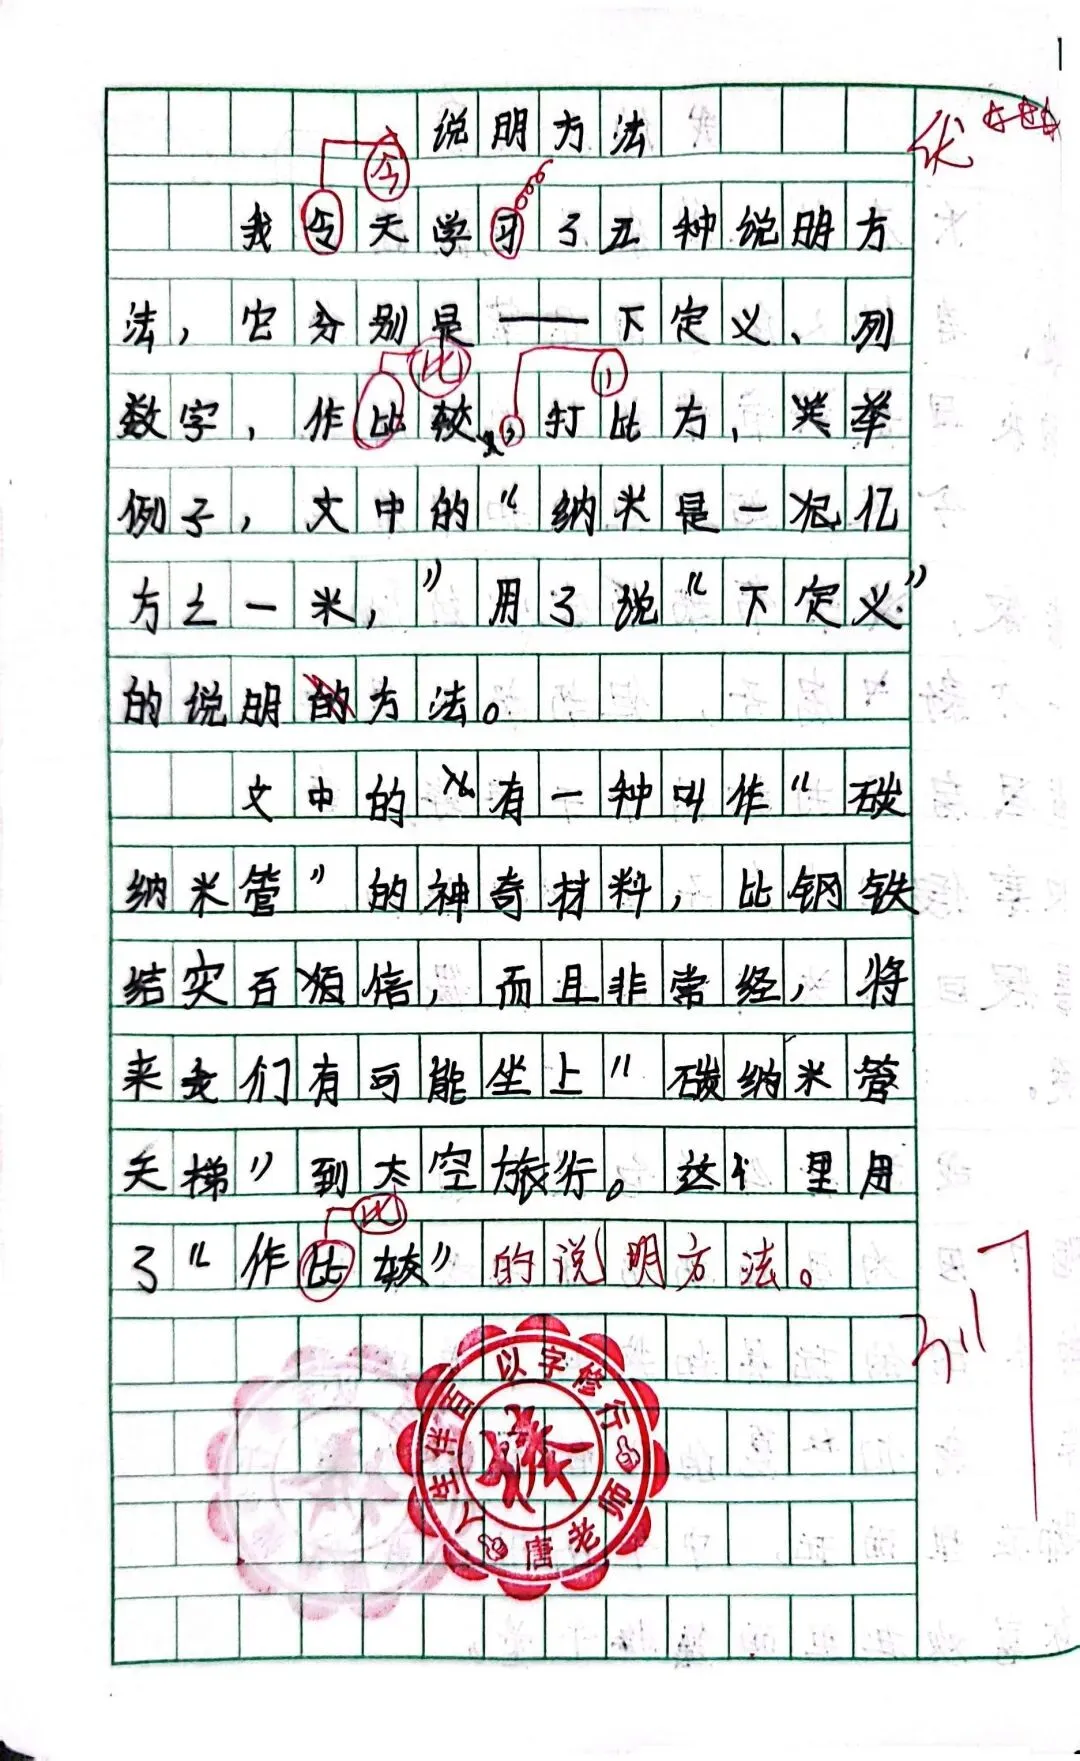 说明方法
优
今
我今天学习了五种说明方
法，它分别是——下定义、列
比
数字，作比较，打比方，举
例子，文中的“纳米是一
方之一米，”用了说“下定义”
的说明的方法。
文中的有一种叫作“碳
纳米管”的神奇材料，比钢铁
结实百倍，而且非常经，将
来我们有可能坐上“碳纳米管
天梯”到太空旅行。这里用
比
了“作比较”的说明方法。
人生伴百 以字修行
唐老师